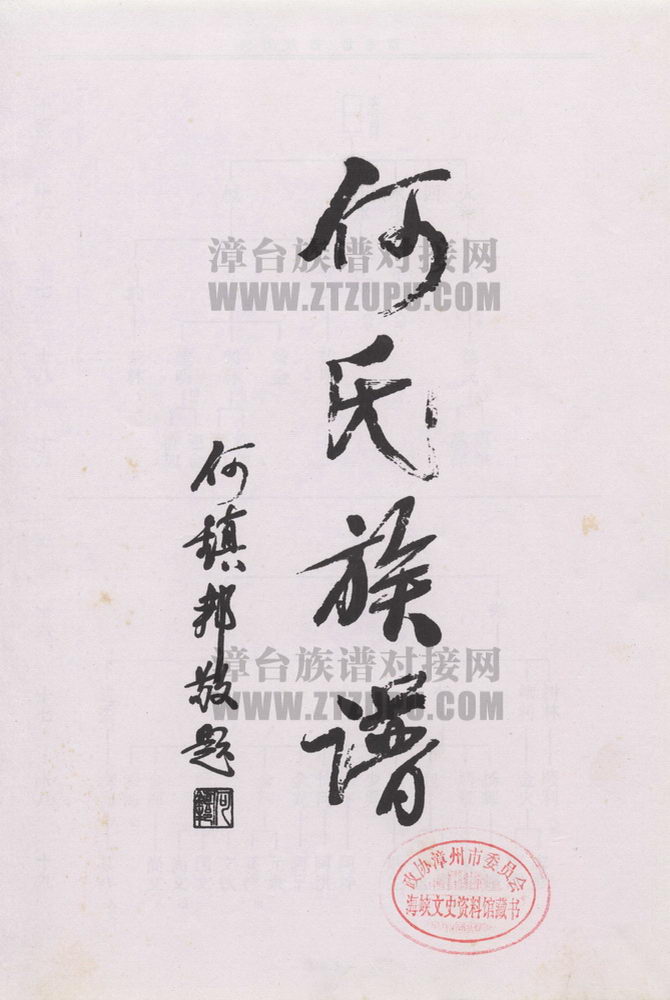 何氏族谱
何镇邦敬题
漳台族谱对接网
WWW.ZTZUPU.COM
漳台族谱对接网
WWW.ZTZUPU.COM
政协漳州市委员会
海峡文史资料馆藏书